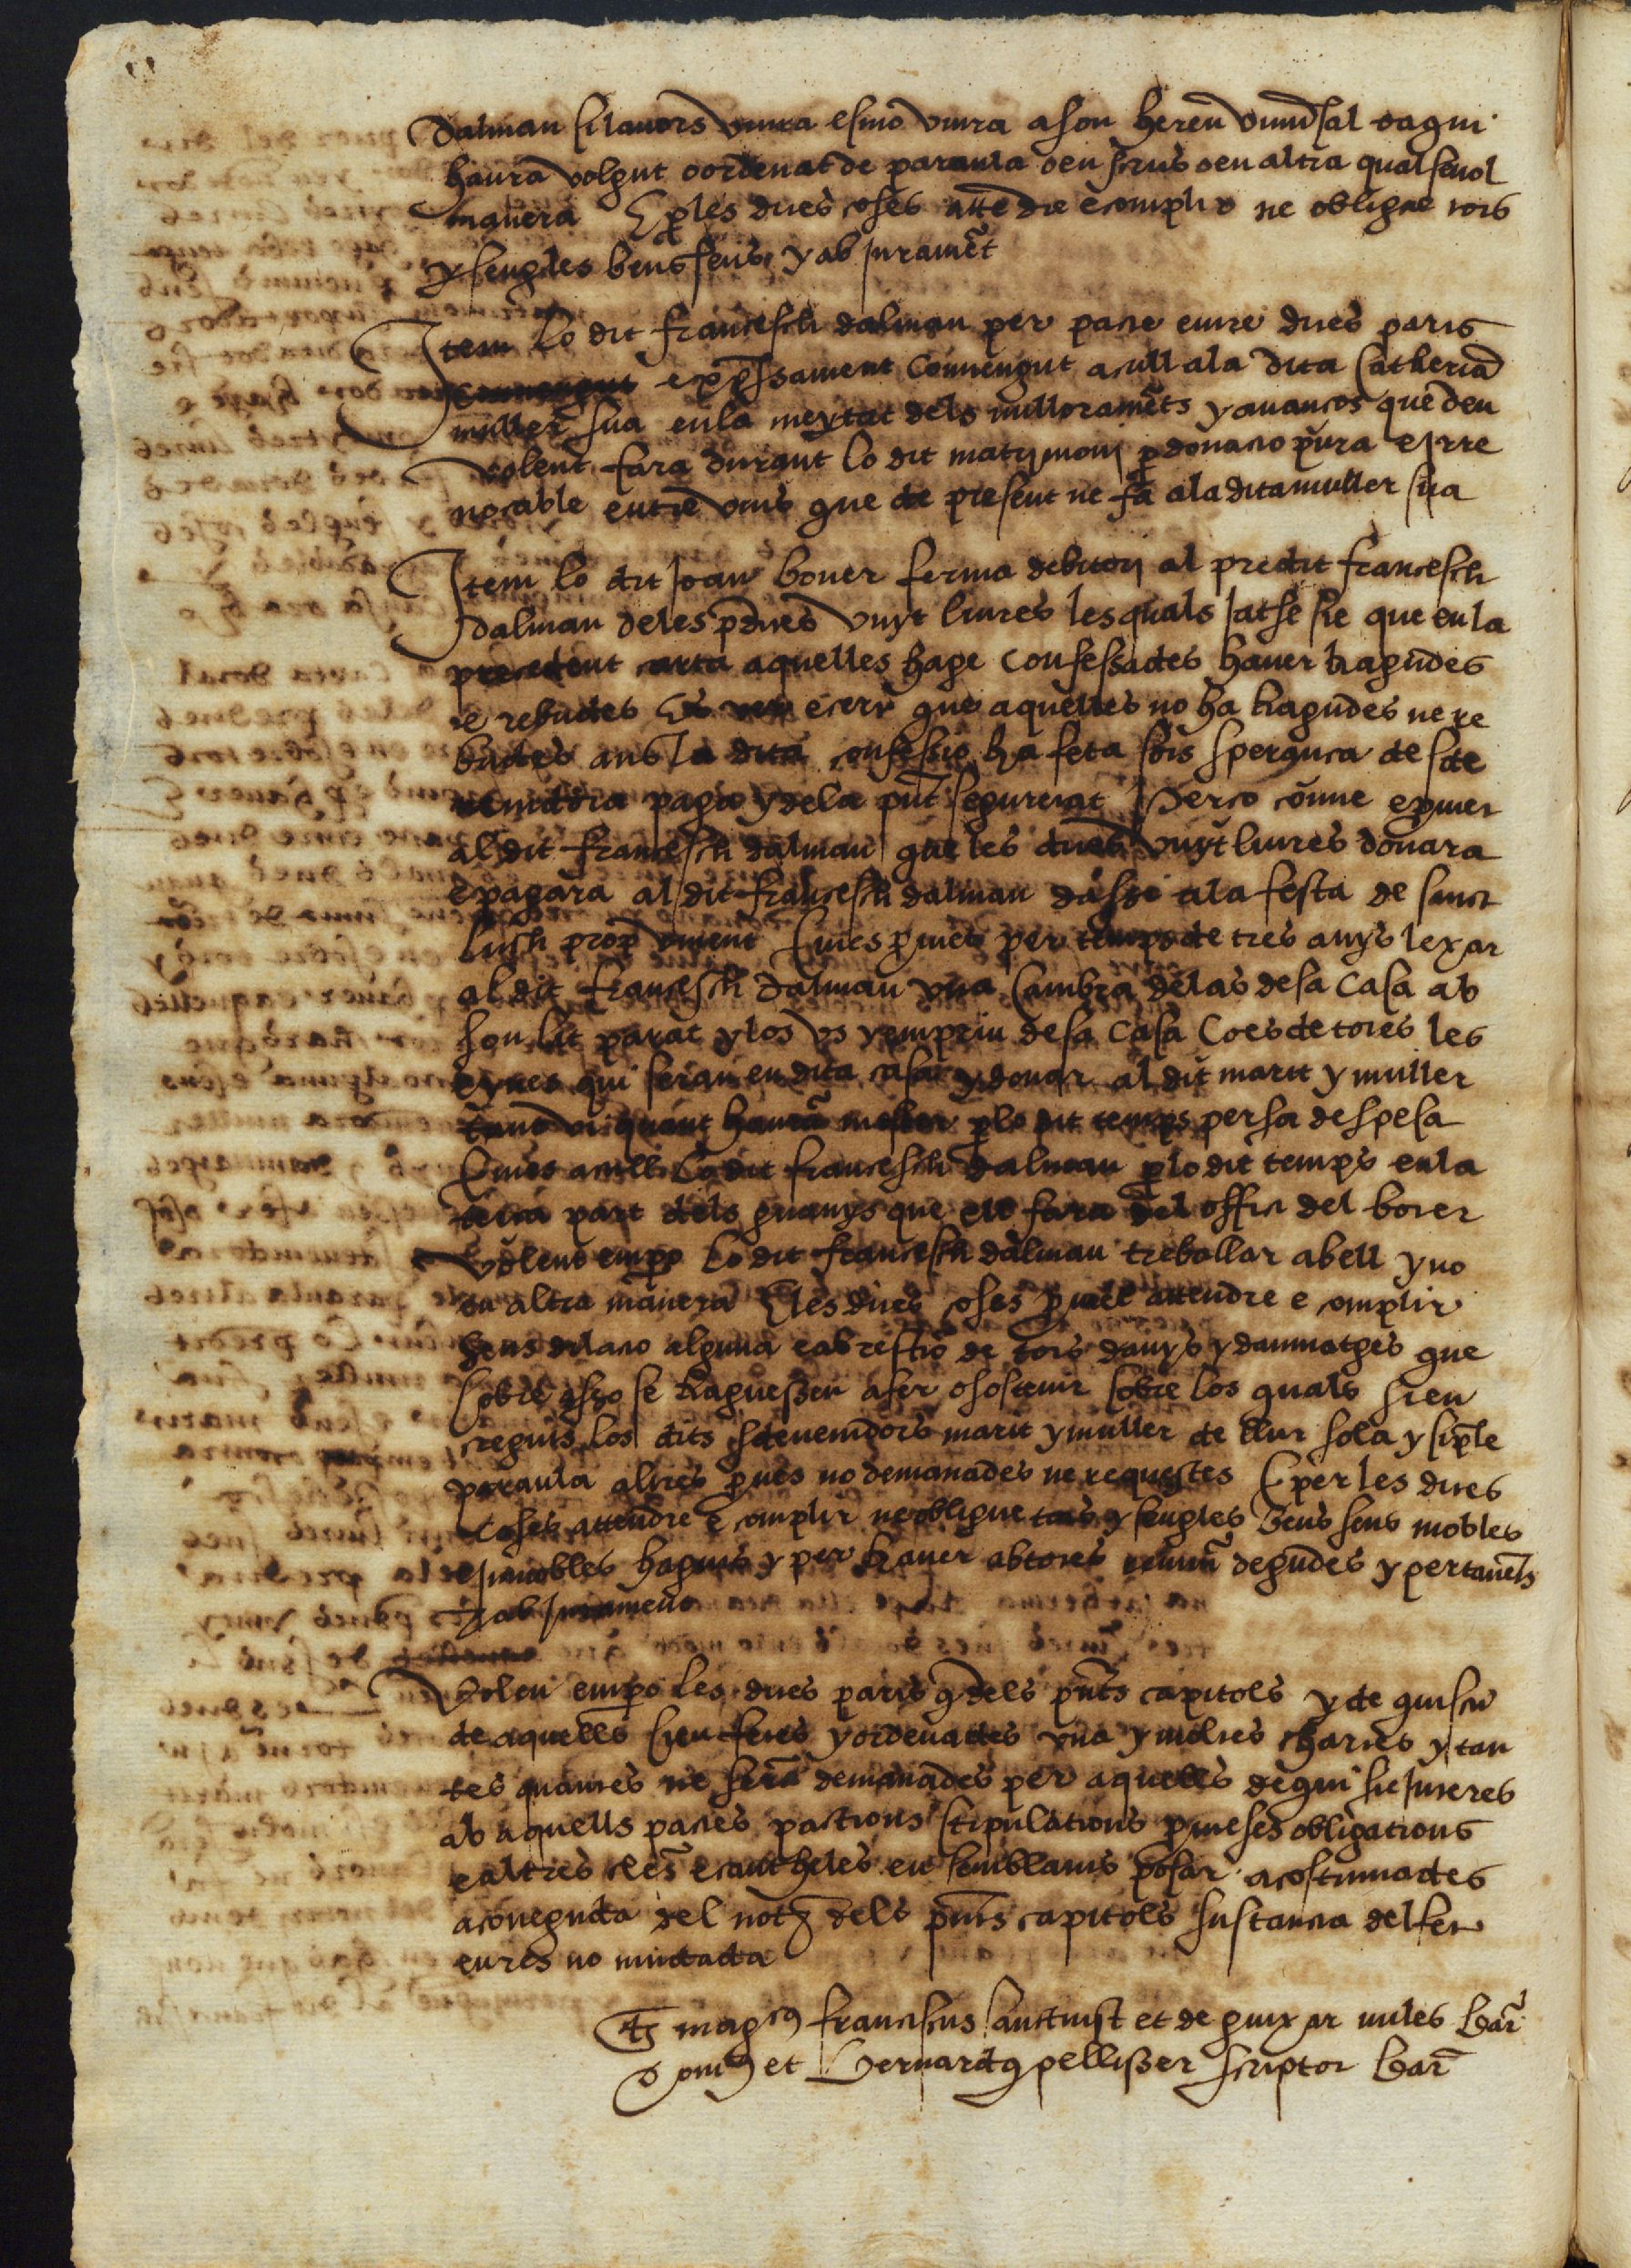 Dalmau si lauors viura e si no viura a son hereu vniu̅sal o a qui
haura volgut o ordenat de paraula o en scrits o en altra qualseuol
manera E p les dites coses atte̅dre e complir ne obligae tots
y sengles bens seus y ab jurame̅t
Item lo dit francesch dalmau per pacte entre dites parts
expressament conuengut acull a la dita Catherina
muller sua en la meytat dels milloraments y auanços que deu
volent fara durant lo dit matrimonj p donacio pura e irre
uocable entre vius que de present ne fa a la dita muller sua
Item lo dit Joan bouer ferma debitorj al predit francesch
dalmau de les pdites vuyt liures les quals jatse sie que en la
precedent carta aquelles hage confessades hauer hagudes
e rebudes Es ver e cert que aquelles no ha hagudes ne re
budes ans la dita confessio ha feta sots sperança de sde
uenidora paga y de la pnt seguretat Perço conue e pmet
al dit francesch dalmau que les dites vuyt liures donara
e pagara al dit francesch dalmau dassi a la festa de sanct
luch prop vinent E mes pmet per temps de tres anys lexar
al dit francesch dalmau vna cambra de las de sa casa ab
son lit parat y los vs y empriu de sa casa ço es de totes les
eynes qui seran en dita casa y donar al dit marit y muller
tant vi quant hauran mester p lo dit temps per sa despesa
E mes acull lo dit francesch dalmau p lo dit temps en la
terça part dels guanys que ell fara del offici del boter
volent empo lo dit francesch dalmau treballar ab ell y no
en altra manera E les dites coses pmet attendre e complir
sens dilacio alguna e ab restitio de tots danys y dammatges que
sobre asso se haguessen a fer o sostenir sobre los quals sien
creguts los dits sdeuenidors marit y muller de llur sola y simple
paraula altres pues no demanades ne requestes E per les dites
coses attendre e complir ne obligue tots y sengles bens seus mobles
e immobles haguts y per hauer ab totes renun degudes y pertanents
y ab jurament
Volen empo les dites parts q dels pnts capitols y de quiscu
de aquells sien fetes y ordenades vna y moltes chartes y tan
tes quantes ne seran demanades per aquells de qui sie interes
ab aquells pactes pactions stipulations pmeses obligations
e altres cles e cautheles en semblants posar acostumades
a coneguda del not dels pnts capitols sustancia del fet
en res no mudada
Ts mag̅cus franciscus sanctmist et de guixar miles bar̅
Domus et Bernardus pellisser scriptor bar̅